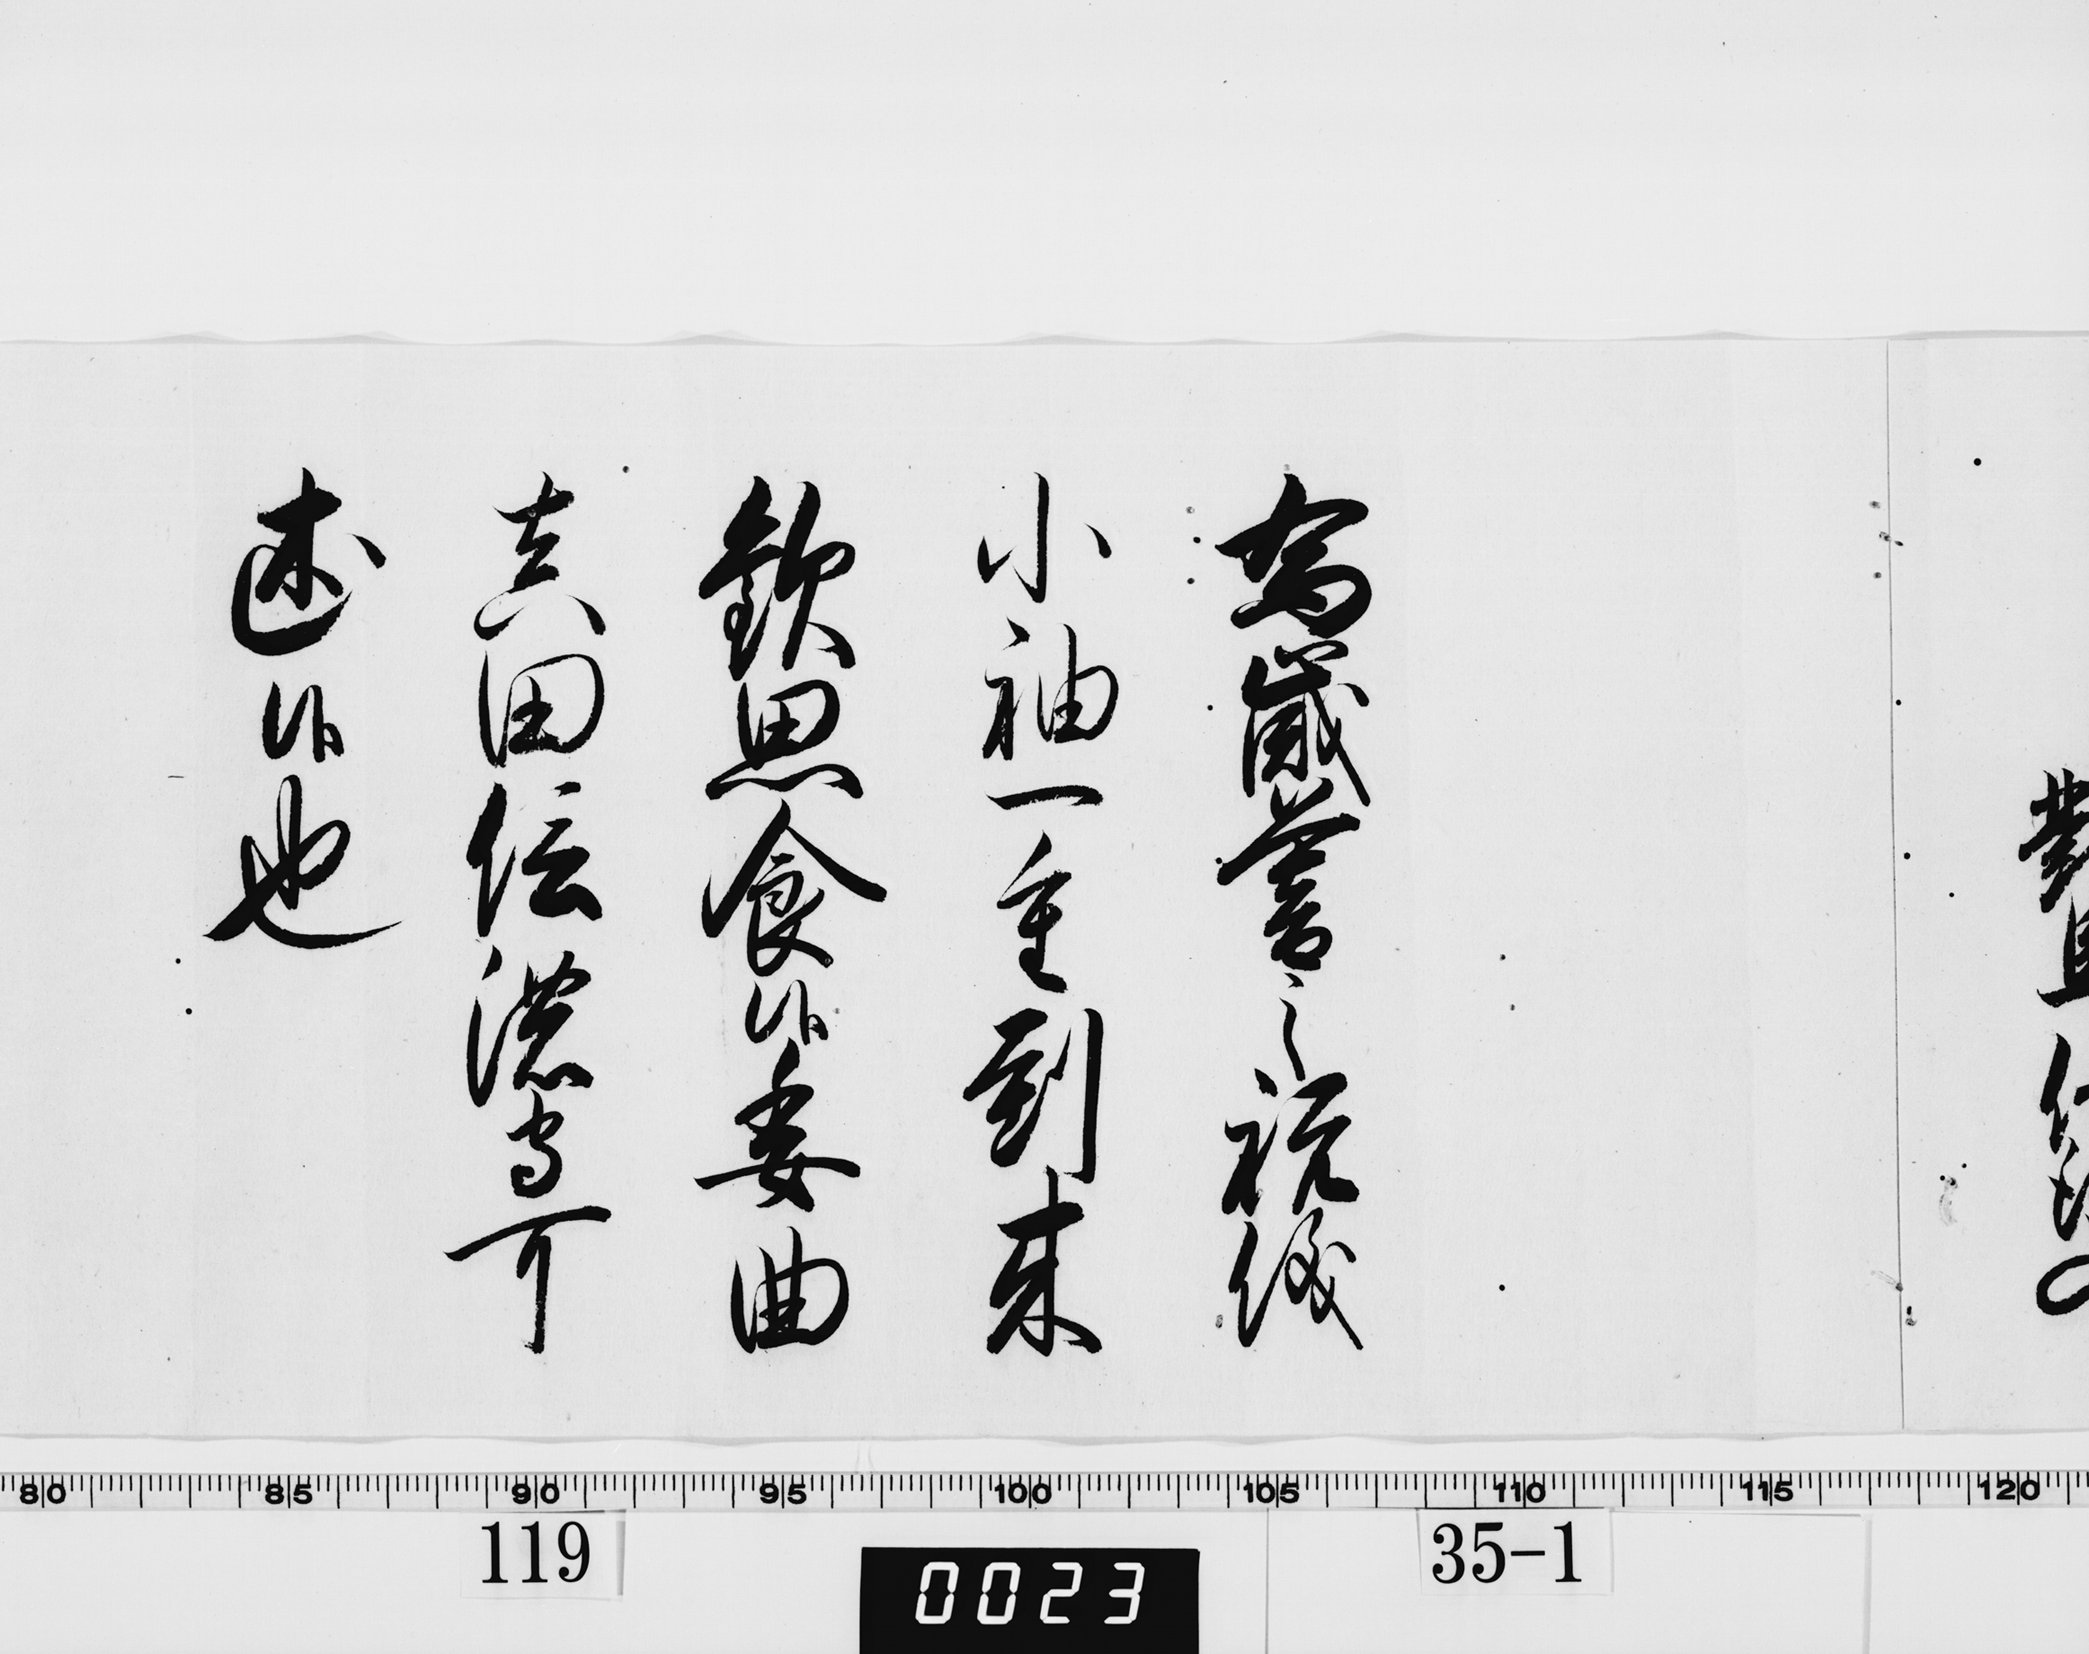 為歳暮之祝儀
小袖一重到来
歓思食候委曲
真田信濃守可
述候也
80 85 90 95 100 105 110 115 120
119
35-1
0023